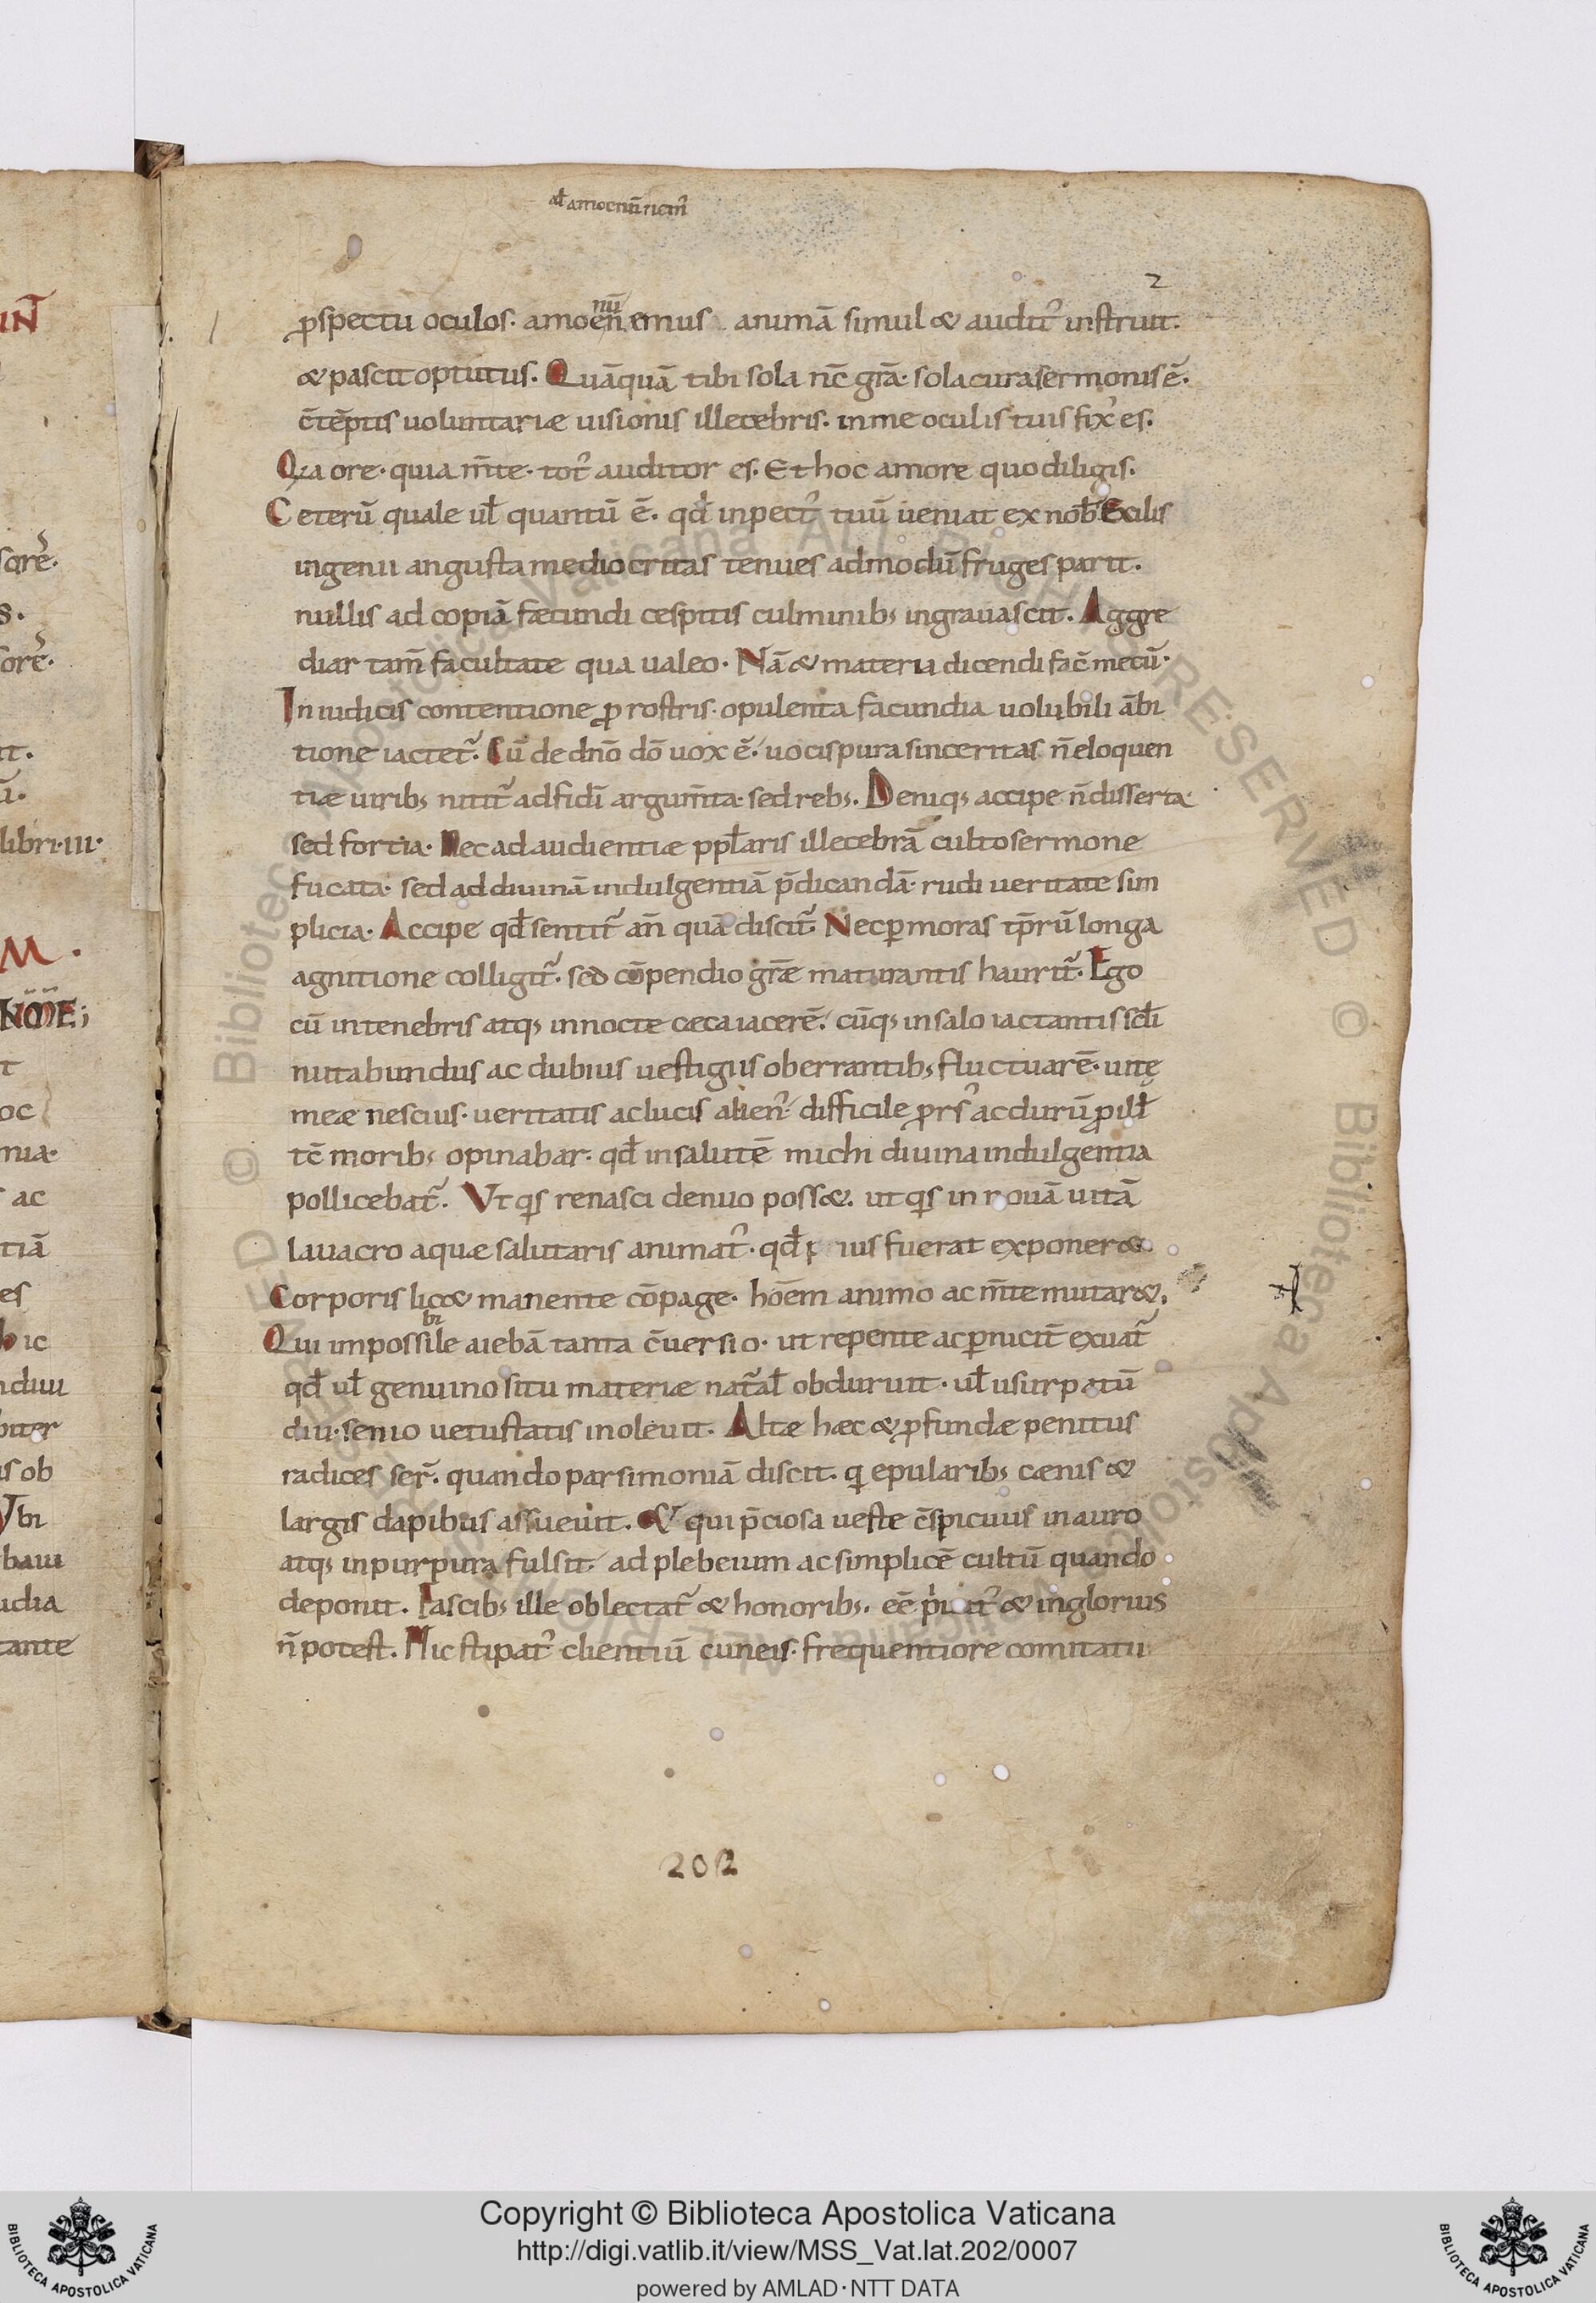 al amoenū nem̄
2
ꝑspectu oculos· amoenemus animā simul & audit᷒ instruit·
nū
& pascit optutus. Quāquā tibi sola nc̄ gr̄a· sola cura sermonis ē·
c̄tēptis voluntariæ uisionis illecebris· in me oculis tuis fix᷒ es·
Qa ore· quia m̄te· tot᷒ auditor es. Et hoc amore quo diligis·
Ceterū quale ul̄ quantū ē· qđ in pect᷒ tuū ueniat ex nob̄ Exilis
ingenii angusta mediocritas tenues admodū fruges parit·
nullis ad copiā fæcundi cespitis culminibꝫ ingrauascit. Aggre
diar tam̄ facultate qua ualeo. Nā & materia dicendi fac̄ mecū·
In iudiciis contentione ꝓ rostris· opulenta facundia uolubili ābi
tione iactet᷒. Cū de dn̄o dō uox ē· uocis pura sinceritas n̄ eloquen
tiæ uiribꝫ nitit᷒ ad fidī argum̄ta· sed rebꝫ. Deniqꝫ accipe n̄ disserta
sed fortia· Nec ad audientiæ ppl̄aris illecebrā culto sermone
fucata· sed ad diuinā indulgentiā p̄dicandā· rudi ueritate sim
plicia· Accipe qđ sentit᷒ an̄ quā discit᷒. Nec ꝑ moras tp̄rū longa
agnitione colligit᷒· sed cōpendio gr̄æ maturantis haurit᷒. Ego
cū in tenebris atqꝫ in nocte cæca iacerē· cūqꝫ in salo iactantis scl̄i
nutabundus ac dubius uestigiis oberrantibꝫ fluctuarē· uitę
meæ nescius· ueritatis ac lucis alien᷒· difficile ꝓrs᷒ ac durū ꝓ ill̄
tc̄ moribꝫ opinabar· qđ in salutē michi diuina indulgentia
pollicebat᷒. Vt qͥs renasci denuo poss&· ut qͥs in nouā uitā
lauacro aquæ salutaris animat᷒· qđ p ius fuerat exponer&·
Corporis lic& manente cōpage· hōēm animo ac m̄te mutar&·
bi
Qui impossile aiebā tanta c̄uersio· ut repente ac ꝑnicit̄ exuat᷒
qđ ul̄ genuino situ materiæ nat᷒al̄ obduruit· ul̄ usurpatū
diu· senio uetustatis inoleuit. Altæ hæc & ꝓfundæ penitus
radices ser̄· quando parsimoniā discit· qͥ epularibꝫ cænis &
largis dapibus assueuit. & qui p̄ciosa ueste c̄spicuus in auro
atqꝫ in purpura fulsit· ad plebeium ac simplicē cultū quando
deponit. Fascibꝫ ille oblectat᷒ & honoribꝫ· ec̄ & inglorius
n̄ potest. Hic stipat᷒ clientiū cuneis· frequentiore comitatu
202
sorē·
s.
sorē·
libri·iii·
M.
oc
mia·
ac
tiā
es
ic
biter
is ob
Vbi
baui
udia
tante
Copyright © Biblioteca Apostolica Vaticana
http://digi.vatlib.it/view/MSS_Vat.lat.202/0007
powered by AMLAD·NTT DATA
BIBLIOTECA APOSTOLICA VATICANA
BIBLIOTECA APOSTOLICA VATICANA